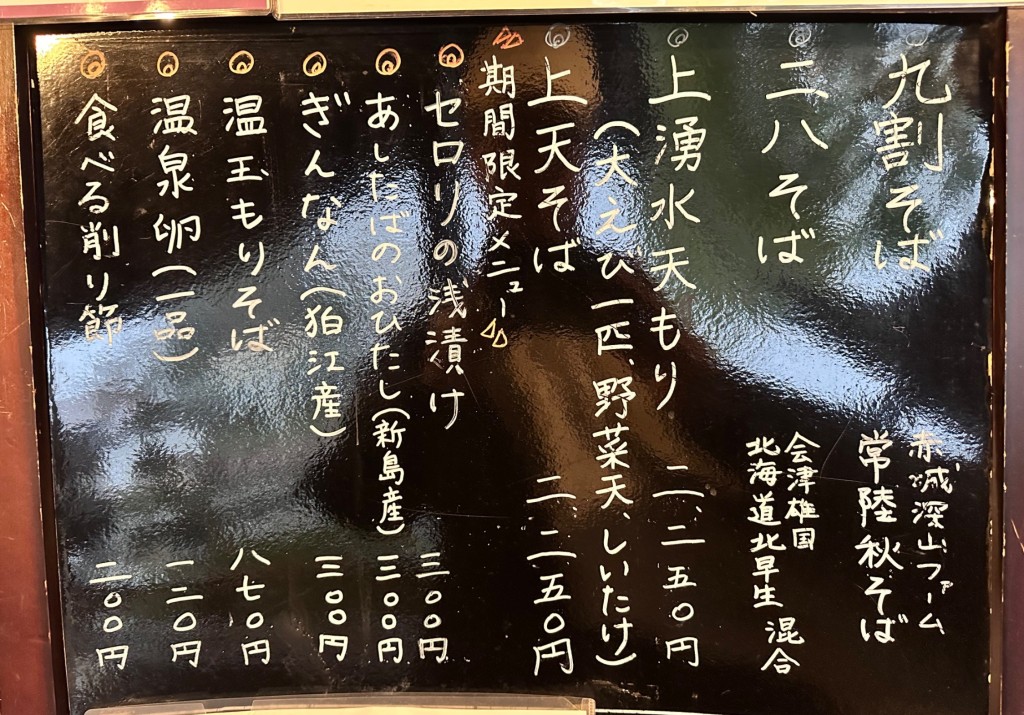 九割そば
赤城深山ファーム
常陸秋そば
二八そば
会津雄国
北海道北早生 混合
上湧水天もり 二、二五〇円
(大えび一匹、野菜天、しいたけ)
上天そば 二、二五〇円
期間限定メニュー
セロリの浅漬け 三〇〇円
あしたばのおひたし(新島産) 三〇〇円
ぎんなん(狛江産) 三〇〇円
温玉もりそば 八七〇円
温泉卵(一品) 一二〇円
食べる削り節 二〇〇円